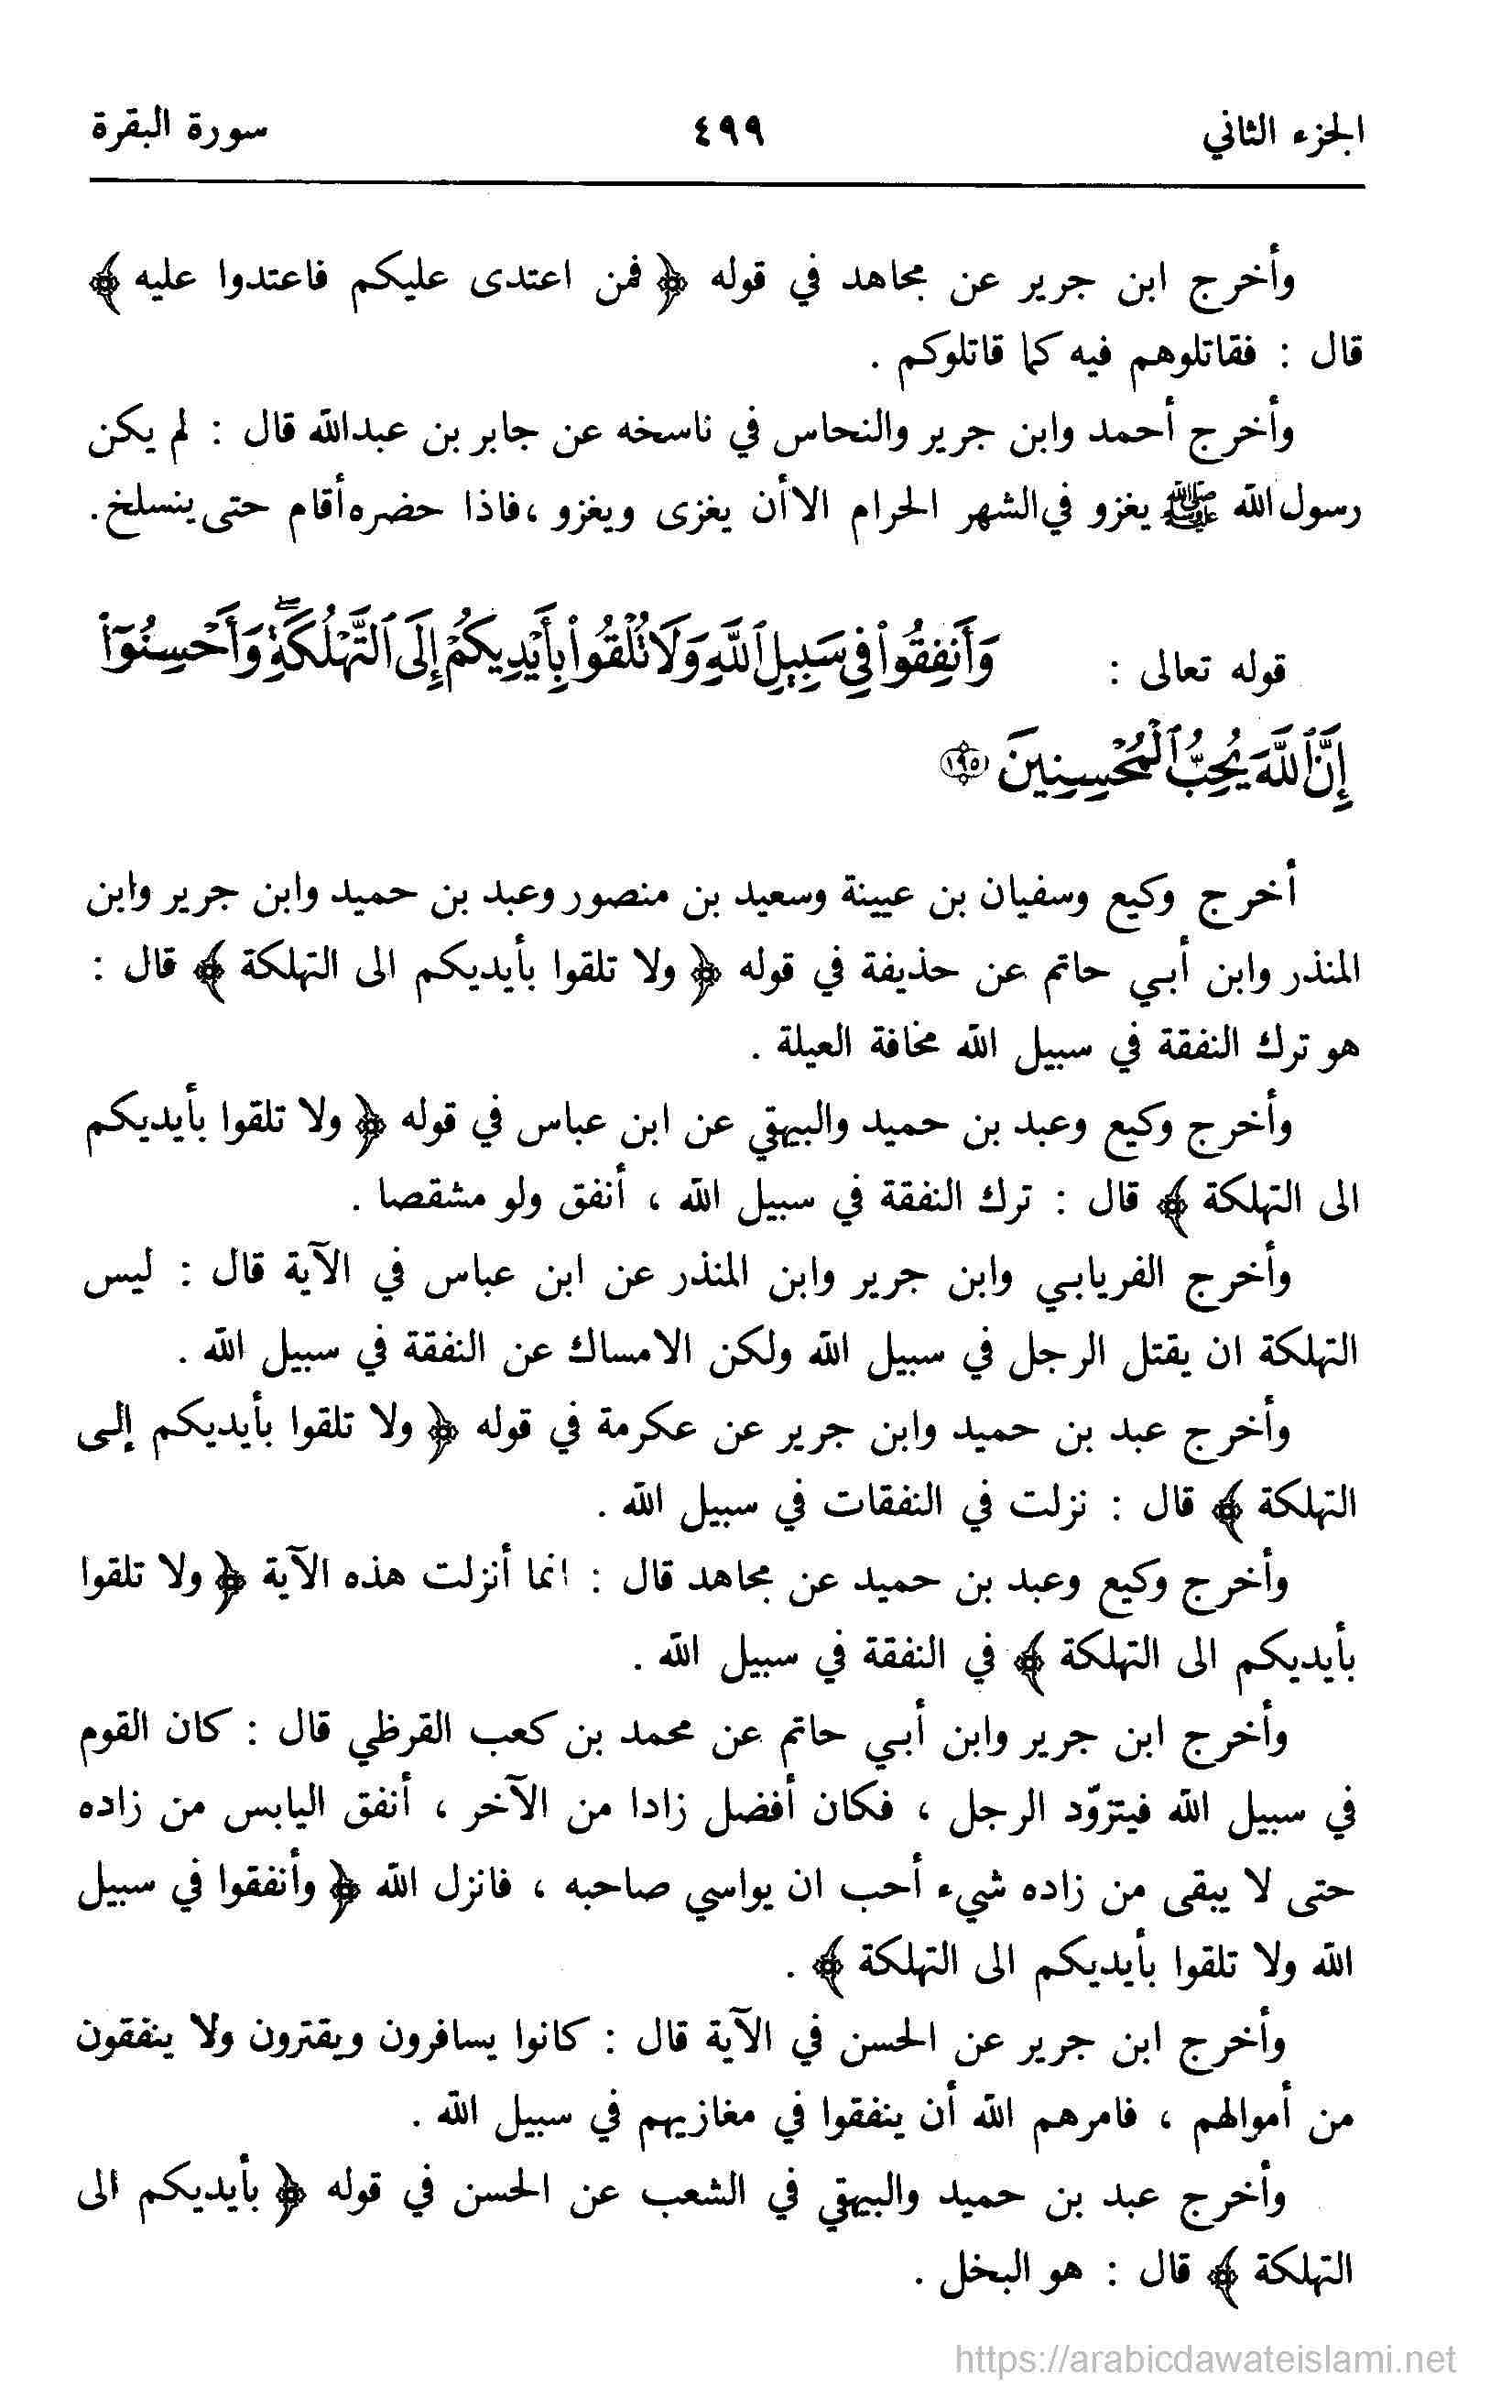 الجزء الثاني ٤٩٩ سورة البقرة
وأخرج ابن جرير عن مجاهد في قوله ﴿ فمن اعتدى عليكم فاعتدوا عليه ﴾
قال : فقاتلوهم فيه كما قاتلوكم .
وأخرج أحمد وابن جرير والنحاس في ناسخه عن جابر بن عبدالله قال : لم يكن
رسول الله ﷺ يغزو في الشهر الحرام الا أن يغزى ويغزو ، فاذا حضره أقام حتى ينسلخ .
قوله تعالى : وَأَنفِقُوا۟ فِى سَبِيلِ ٱللَّهِ وَلَا تُلْقُوا۟ بِأَيْدِيكُمْ إِلَى ٱلتَّهْلُكَةِ ۛ وَأَحْسِنُوٓا۟
إِنَّ ٱللَّهَ يُحِبُّ ٱلْمُحْسِنِينَ ١٩٥
أخرج وكيع وسفيان بن عيينة وسعيد بن منصور وعبد بن حميد وابن جرير وابن
المنذر وابن أبي حاتم عن حذيفة في قوله ﴿ ولا تلقوا بأيديكم الى التهلكة ﴾ قال :
هو ترك النفقة في سبيل الله مخافة العيلة .
وأخرج وكيع وعبد بن حميد والبيهقي عن ابن عباس في قوله ﴿ ولا تلقوا بأيديكم
الى التهلكة ﴾ قال : ترك النفقة في سبيل الله ، أنفق ولو مشقصا .
وأخرج الفريابي وابن جرير وابن المنذر عن ابن عباس في الآية قال : ليس
التهلكة ان يقتل الرجل في سبيل الله ولكن الامساك عن النفقة في سبيل الله .
وأخرج عبد بن حميد وابن جرير عن عكرمة في قوله ﴿ ولا تلقوا بأيديكم إلى
التهلكة ﴾ قال : نزلت في النفقات في سبيل الله .
وأخرج وكيع وعبد بن حميد عن مجاهد قال : انما أنزلت هذه الآية ﴿ ولا تلقوا
بأيديكم الى التهلكة ﴾ في النفقة في سبيل الله .
وأخرج ابن جرير وابن أبي حاتم عن محمد بن كعب القرظي قال : كان القوم
في سبيل الله فيتزوّد الرجل ، فكان أفضل زادا من الآخر ، أنفق اليابس من زاده
حتى لا يبقى من زاده شيء أحب ان يواسي صاحبه ، فانزل الله ﴿ وأنفقوا في سبيل
الله ولا تلقوا بأيديكم الى التهلكة ﴾ .
وأخرج ابن جرير عن الحسن في الآية قال : كانوا يسافرون ويقترون ولا ينفقون
من أموالهم ، فامرهم الله أن ينفقوا في مغازيهم في سبيل الله .
وأخرج عبد بن حميد والبيهقي في الشعب عن الحسن في قوله ﴿ بأيديكم الى
التهلكة ﴾ قال : هو البخل .
https://arabicdawateislami.net